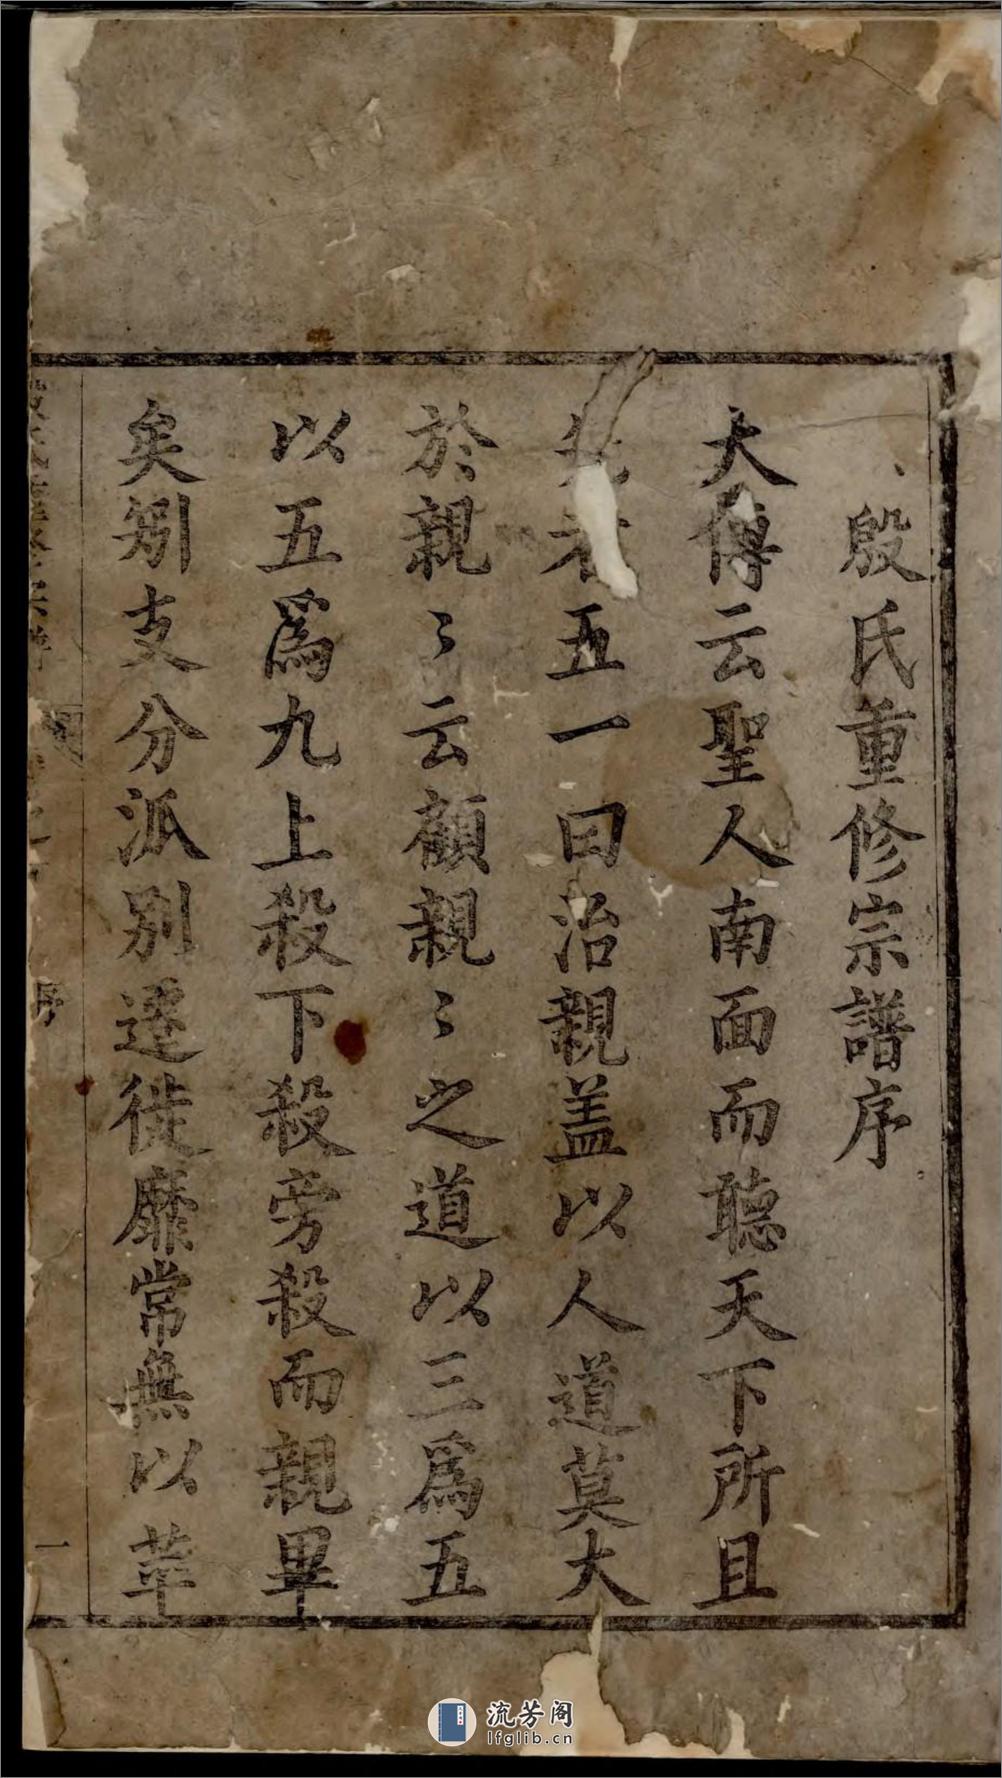 殷氏重修宗譜序
大傳云聖人南面而聽天下所且
先者五一曰治親盖以人道莫大
於親〻云顧親〻之道以三爲五
以五爲九上殺下殺旁殺而親畢
矣矧支分派别遷徙靡常無以萃
序
一
流芳阁
lfglib.cn